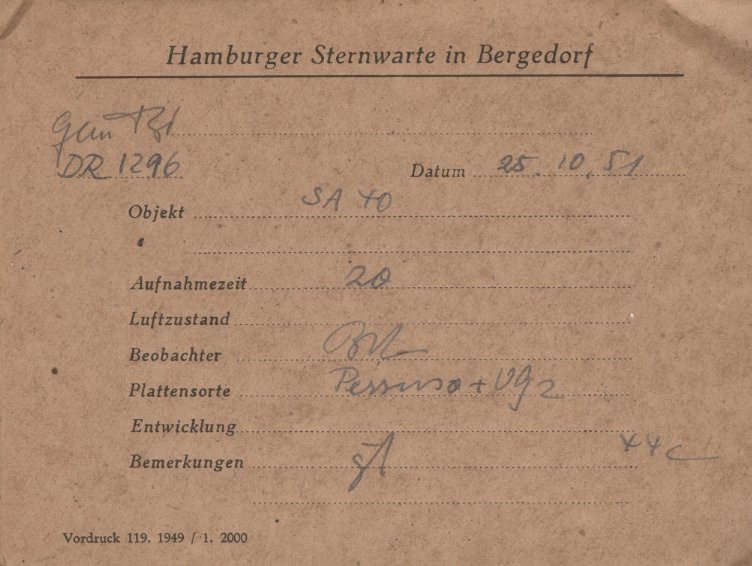 Hamburger Sternwarte in Bergedorf
DR 1296 Datum 25.10.51
Objekt SA 40
Aufnahmezeit 20
Luftzustand
Beobachter
Plattensorte + VG2
Entwicklung
Bemerkungen gt
Vordruck 119. 1949 / 1. 2000